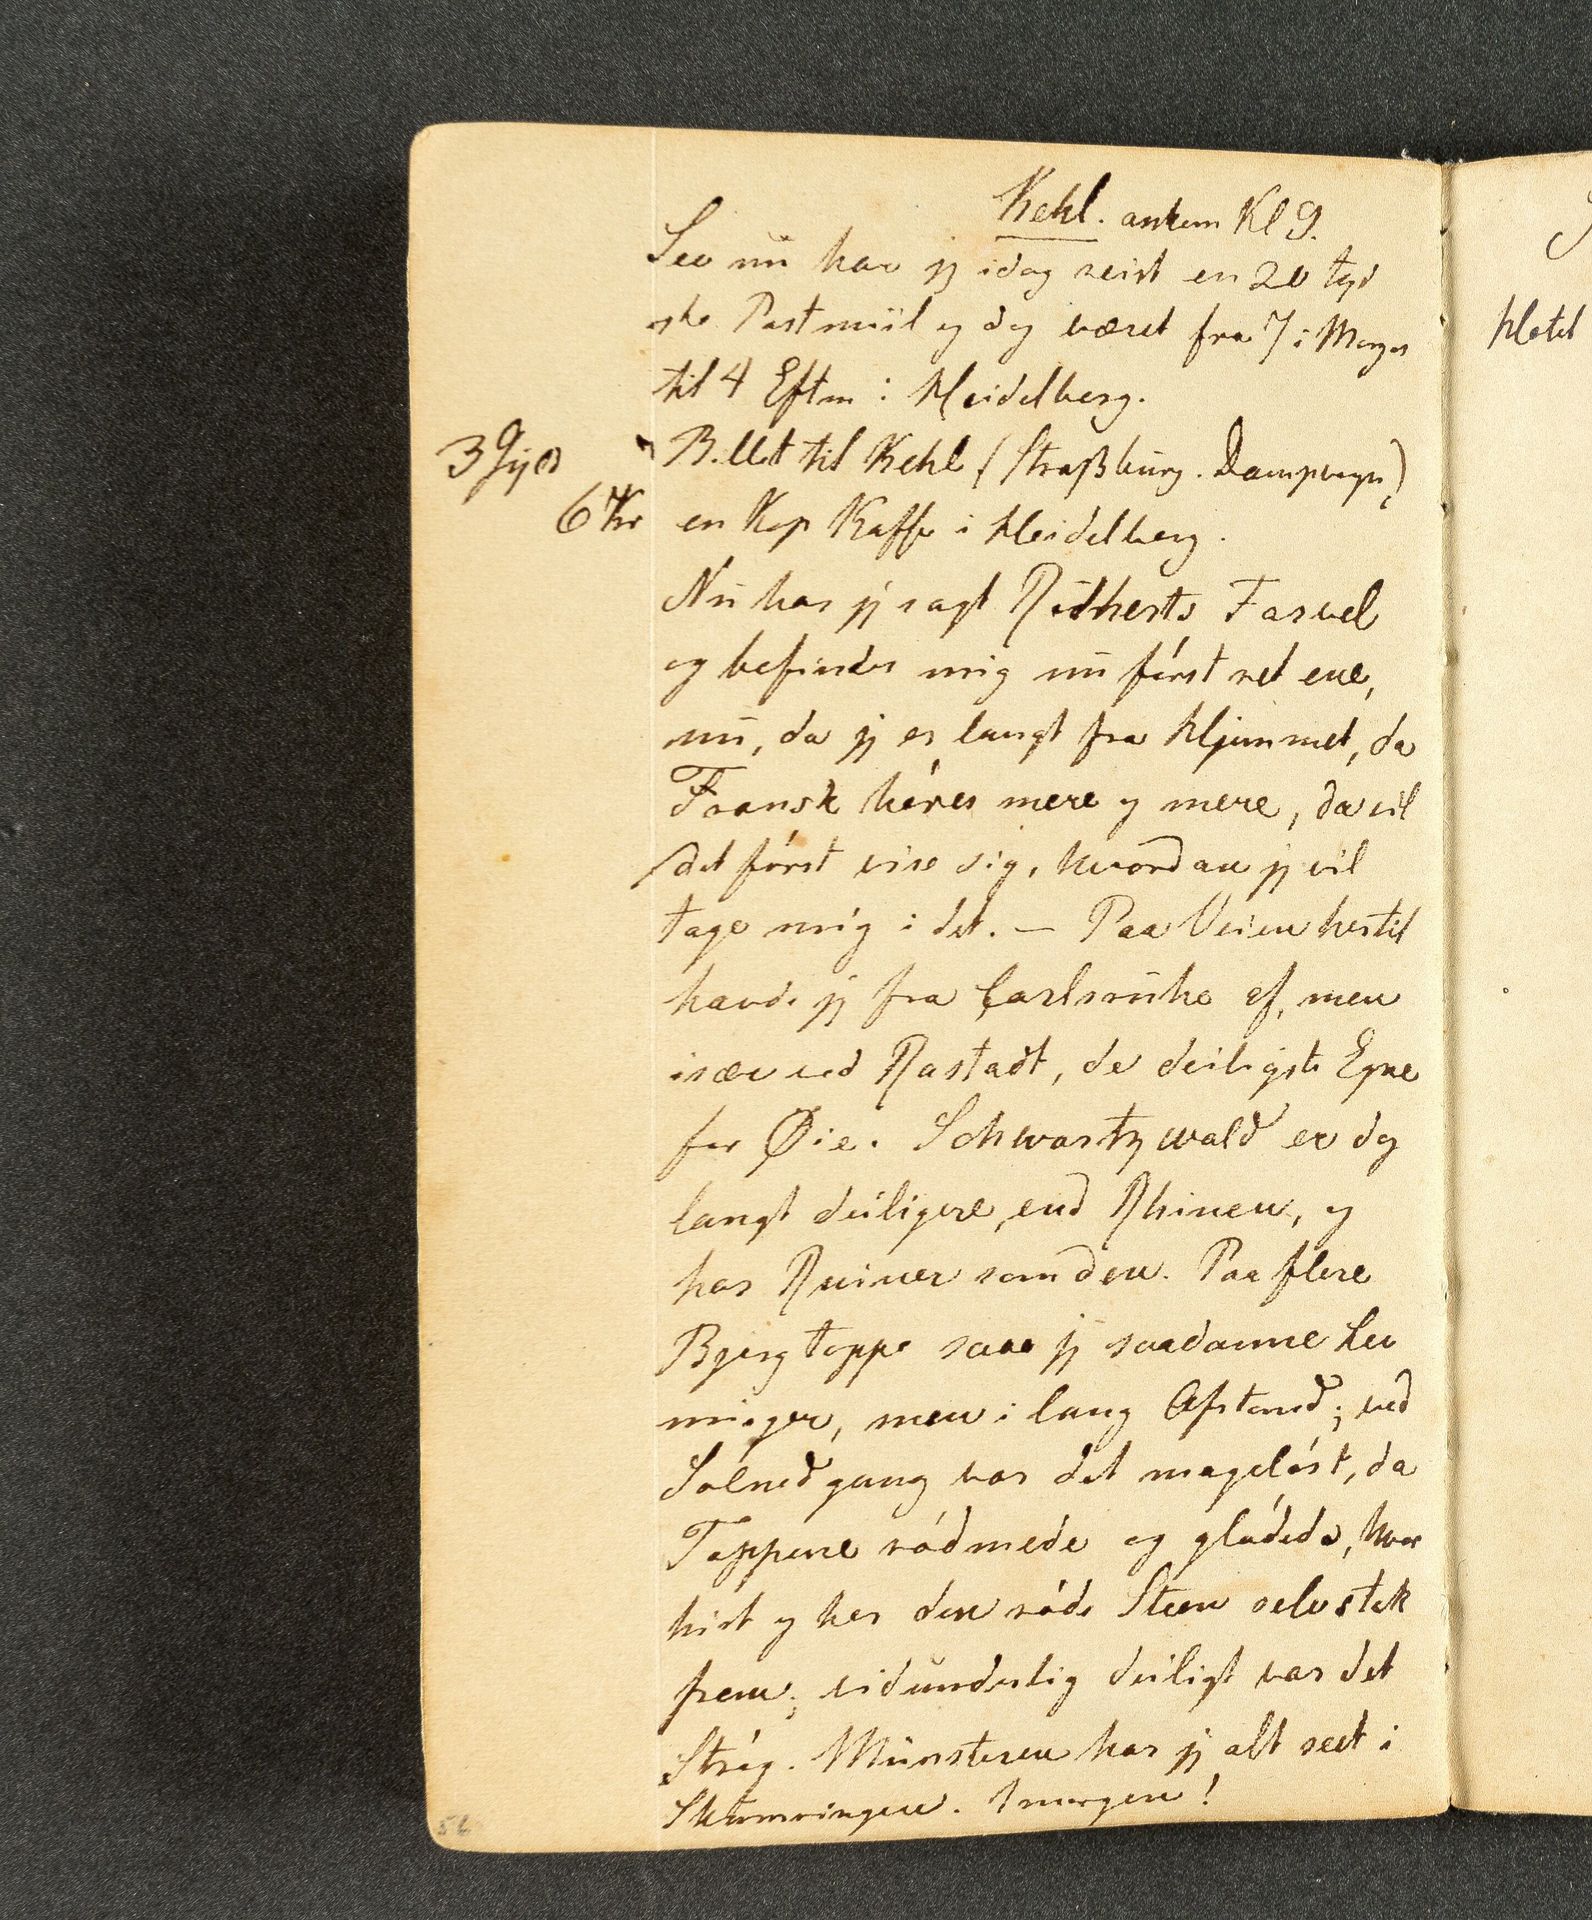 Kehl. ankom Kl 9.
See nu har jeg idag reist en 20 tyd
ske Postmiil og dog været fra 7 i Morges
til 4 Eftm i Heidelberg.
3 Gyld Billet til Kehl (Straßburg. Dampvogn)
6 Kr en Kop Kaffe i Heidelberg.
Nu har jeg sagt Farvel
og befinder mig nu først ret ene,
nu, da jeg er langt fra Hjemmet, da
Fransk høres mere og mere, da vil
det først vise sig, hvordan jeg vil
tage mig i det. — Paa Veien hertil
havde jeg fra Carlsruhe af, men
især ved Rastadt, de deiligste Egne
for Øie. Schwartzwald er dog
langt deiligere, end Rhinen, og
har Ruiner som den. Paa flere
Bjergtoppe saae jeg saadanne Lev
ninger, men i lang Afstand; ved
Solnedgang var det mageløst, da
Toppene rødmede og glødede, hvor
hist og her den røde Steen selv stak
frem; vidunderlig deiligt var det
Strøg. Münsteren har jeg alt seet i
Skumringen. Imorgen!
Hotel
52